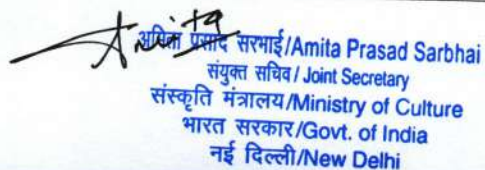 Anita
अमिता प्रसाद सरभाई/Amita Prasad Sarbhai
संयुक्त सचिव / Joint Secretary
संस्कृति मंत्रालय/Ministry of Culture
भारत सरकार/Govt. of India
नई दिल्ली/New Delhi